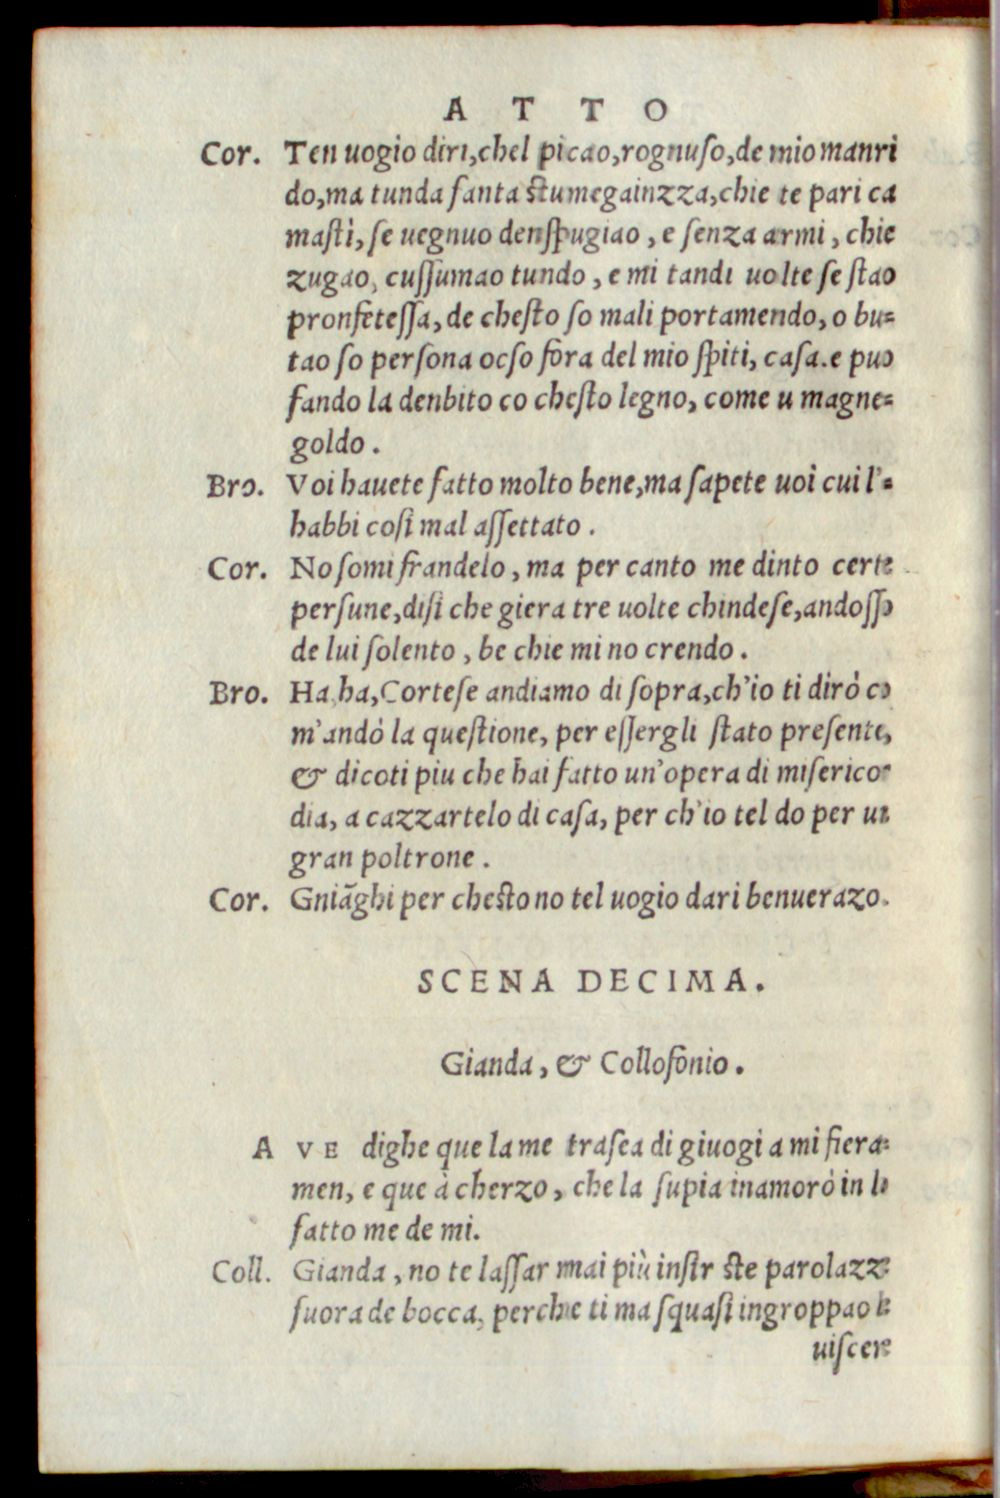 A T T O
Cor. Ten uogio diri,chel picao,rognuſo,de mio manri
do,ma tunda ſanta ſtumegainzza,chie te pari ca
maſtì, ſe uegnuo denſpugiao, e ſenza armi, chie
zugao, cuſſumao tundo, e mi tandi uolte ſe ſtao
pronfeteſſa, de cheſto ſo mali portamendo, o bu=
tao ſo perſona ocſo fora del mio ſpiti, caſa. e puo
fando la denbito co cheſto legno, come u magne=
goldo.
Bro. Voi hauete fatto molto bene,ma ſapete uoi cui l'=
habbi coſi mal aſſettato.
Cor. No ſomi frandelo, ma per canto me dinto certe
perſune,diſi che giera tre uolte chindeſe,andoſſo
de lui ſolento, be chie mi no crendo.
Bro. Ha,ha,Corteſe andiamo di ſopra,ch'io ti dirò co
m'andò la queſtione, per eſſergli ſtato preſente,
& dicoti piu che hai fatto un'opera di miſericor
dia, a cazzartelo di caſa, per ch'io tel do per un
gran poltrone.
Cor. Gniãghi per cheſto no tel uogio dari benuerazo.
SCENA DECIMA.
Gianda, & Collofonio.
A VE dighe que la me traſea di giuogi a mi fiera=
men, e que à cherzo, che la ſupia inamorò in lo
fatto me de mi.
Coll. Gianda, no te laſſar mai più inſir ſte parolazze
fuora de bocca, perche ti ma ſquaſi ingroppao le
uiſcere